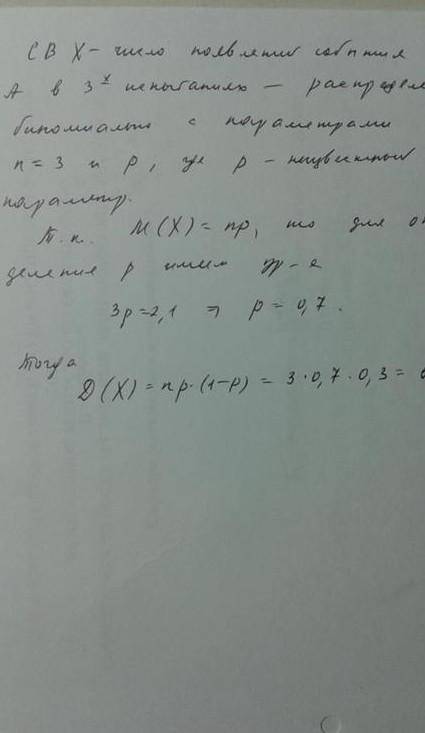 СВ X - число появлений события
A в 3х испытаниях - распределе
биномиально с параметрами
n = 3 и p, где p - неизвестный
параметр.
Т.к. M(X) = np, то для оп
деления p имеем ур-е
3p = 2,1 ⇒ p = 0,7.
Тогда
D(X) = np·(1-p) = 3·0,7·0,3 =